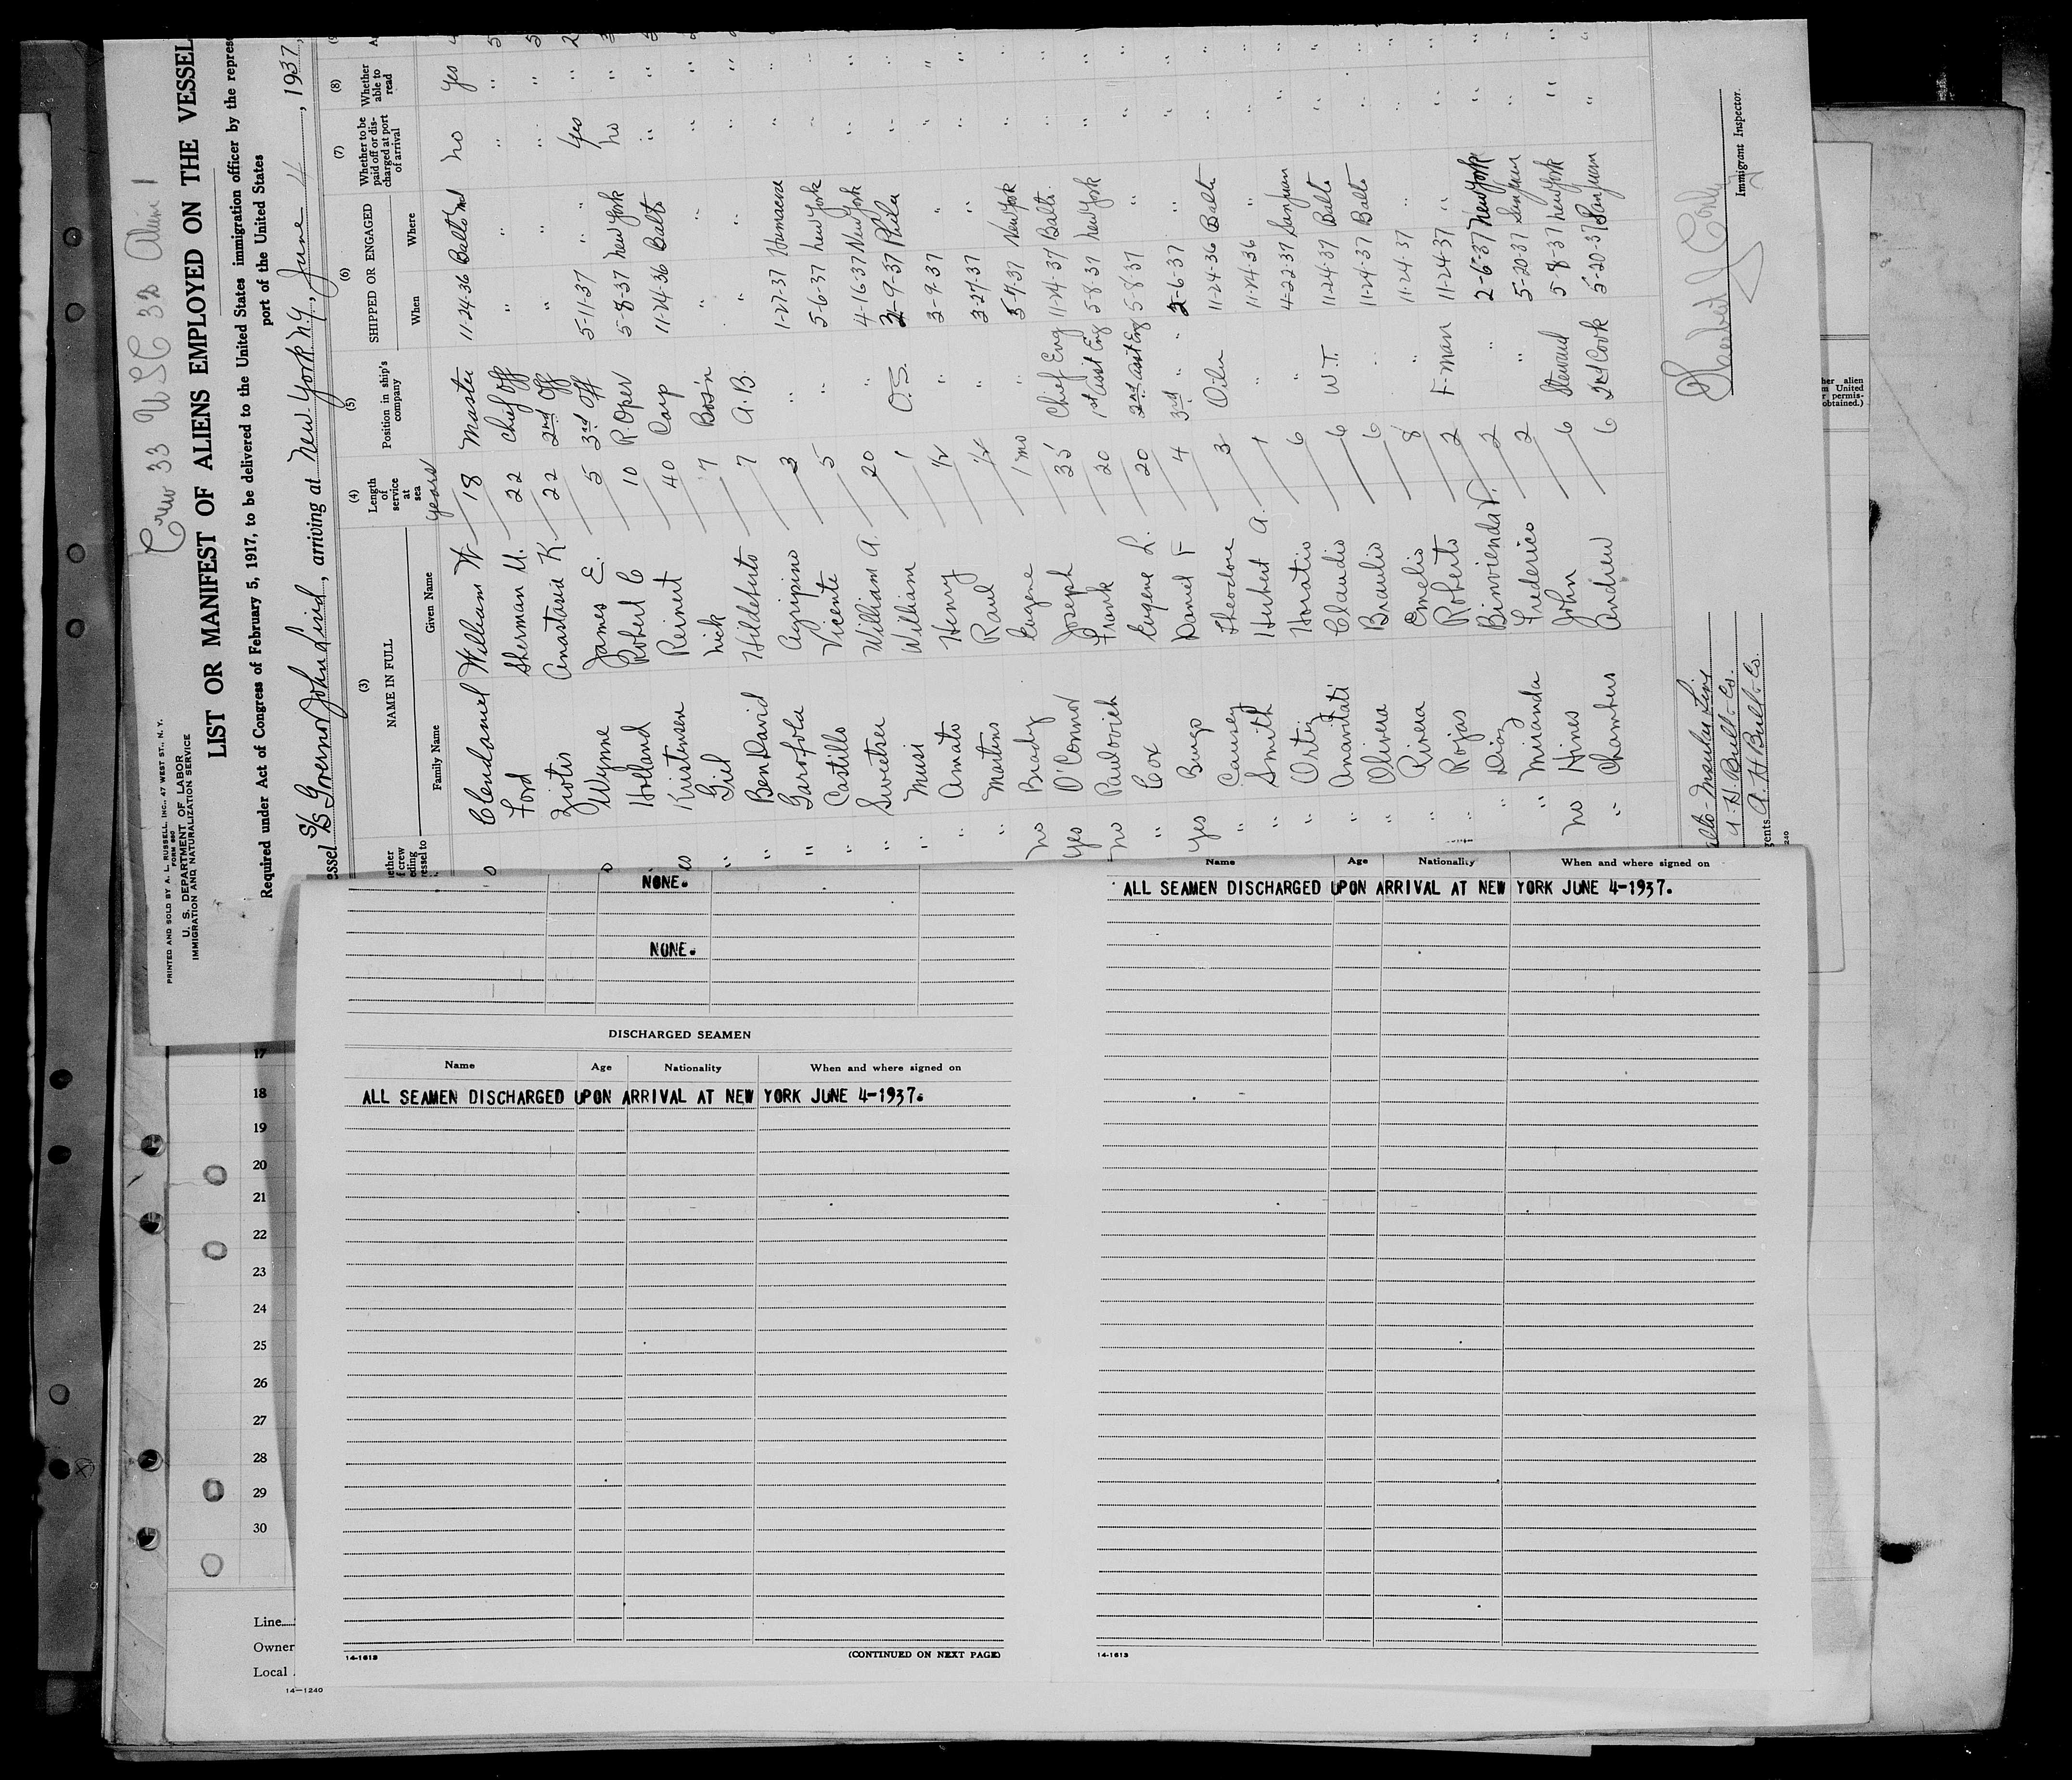 Crew 33 USC 32 Alien 1
PRINTED AND SOLD BY A. L. RUSSELL, INC., 47 WEST ST., N. Y.
FORM 680
U. S. DEPARTMENT OF LABOR
IMMIGRATION AND NATURALIZATION SERVICE
LIST OR MANIFEST OF ALIENS EMPLOYED ON THE VESSEL
Required under Act of Congress of February 5, 1917, to be delivered to the United States immigration officer by the repres
port of the United States
essel S/S Governor John Lind, arriving at New York N.Y., June 4, 1937,
(3) (4) (5) (6) (7) (8)
NAME IN FULL Length of service at sea Position in ship's company SHIPPED OR ENGAGED Whether to be paid off or discharged at port of arrival Whether able to read
Family Name Given Name When Where
years
Clendaniel William W 18 Master 11-24-36 Balto Md no Yes
Ford Sherman U. 22 Chief Off " " " "
Ziotis Anastasia K. 22 2nd Off " " " "
Wynne James E. 5 3rd Off 5-11-37 " Yes "
Holland Robert C 10 R. Oper 5-8-37 New York no "
Kristensen Reinert 40 Carp 11-24-36 Balto " "
" Giel Nick 7 Bos'n " " " "
" BenDavid Hildeberto 7 A.B. " " " "
" Garofola Agripino 3 " 1-27-37 Humacoa " "
" Castillo Vicente 5 " 5-6-37 New York " "
" Sweetser William A. 20 " 4-16-37 New York " "
" Musi William 1 O.S. 3-9-37 Phila " "
" Amato Henry 1/2 " 3-9-37 " " "
" Martins Raul 1/2 " 3-27-37 " " "
no Brady Eugene 1 mo " 5-7-37 New York " "
Yes O'Connor Joseph 35 Chief Eng 11-24-37 Balto. " "
no Paulovich Frank 20 1st Asst Eng 5-8-37 New York " "
" Cox Eugene L. 20 2nd Asst Eng 5-8-37 " " "
Yes Burgo Daniel F 4 3rd " " 2-6-37 " " "
" Causey Theodore 3 Oiler 11-24-36 Balto " "
" Smith Herbert A. 1 " 11-24-36 " " "
" Ortiz Horatio 6 " 4-22-37 Sanjuan " "
" Claudio 6 W.T. 11-24-37 Balto " "
" Olivera Braulio 6 " 11-24-37 Balto " "
" Rivera Emelio 8 " 11-24-37 " " "
" Rojas Roberto 2 F-man 11-24-37 " " "
" Dioz Binvienda V. 2 " 2-6-37 New York " "
" Miranda Frederico 2 " 5-20-37 Sanjuan " "
no Hines John 6 Steward 5-8-37 New York " "
" Chambers Andrew 6 2nd Cook 5-20-37 Sanjuan " "
Immigrant Inspector.
A. H. Bull & Co.
gents A. H Bull & Co.
her alien
m United
r permis-
obtained.)
NONE.
NONE.
DISCHARGED SEAMEN
Name Age Nationality When and where signed on
ALL SEAMEN DISCHARGED UPON ARRIVAL AT NEW YORK JUNE 4-1937.
14-1613 (CONTINUED ON NEXT PAGE)
Name Age Nationality When and where signed on
ALL SEAMEN DISCHARGED UPON ARRIVAL AT NEW YORK JUNE 4-1937.
14-1613
17
18
19
20
21
22
23
24
25
26
27
28
29
30
Line
Owner
Local
14-1240